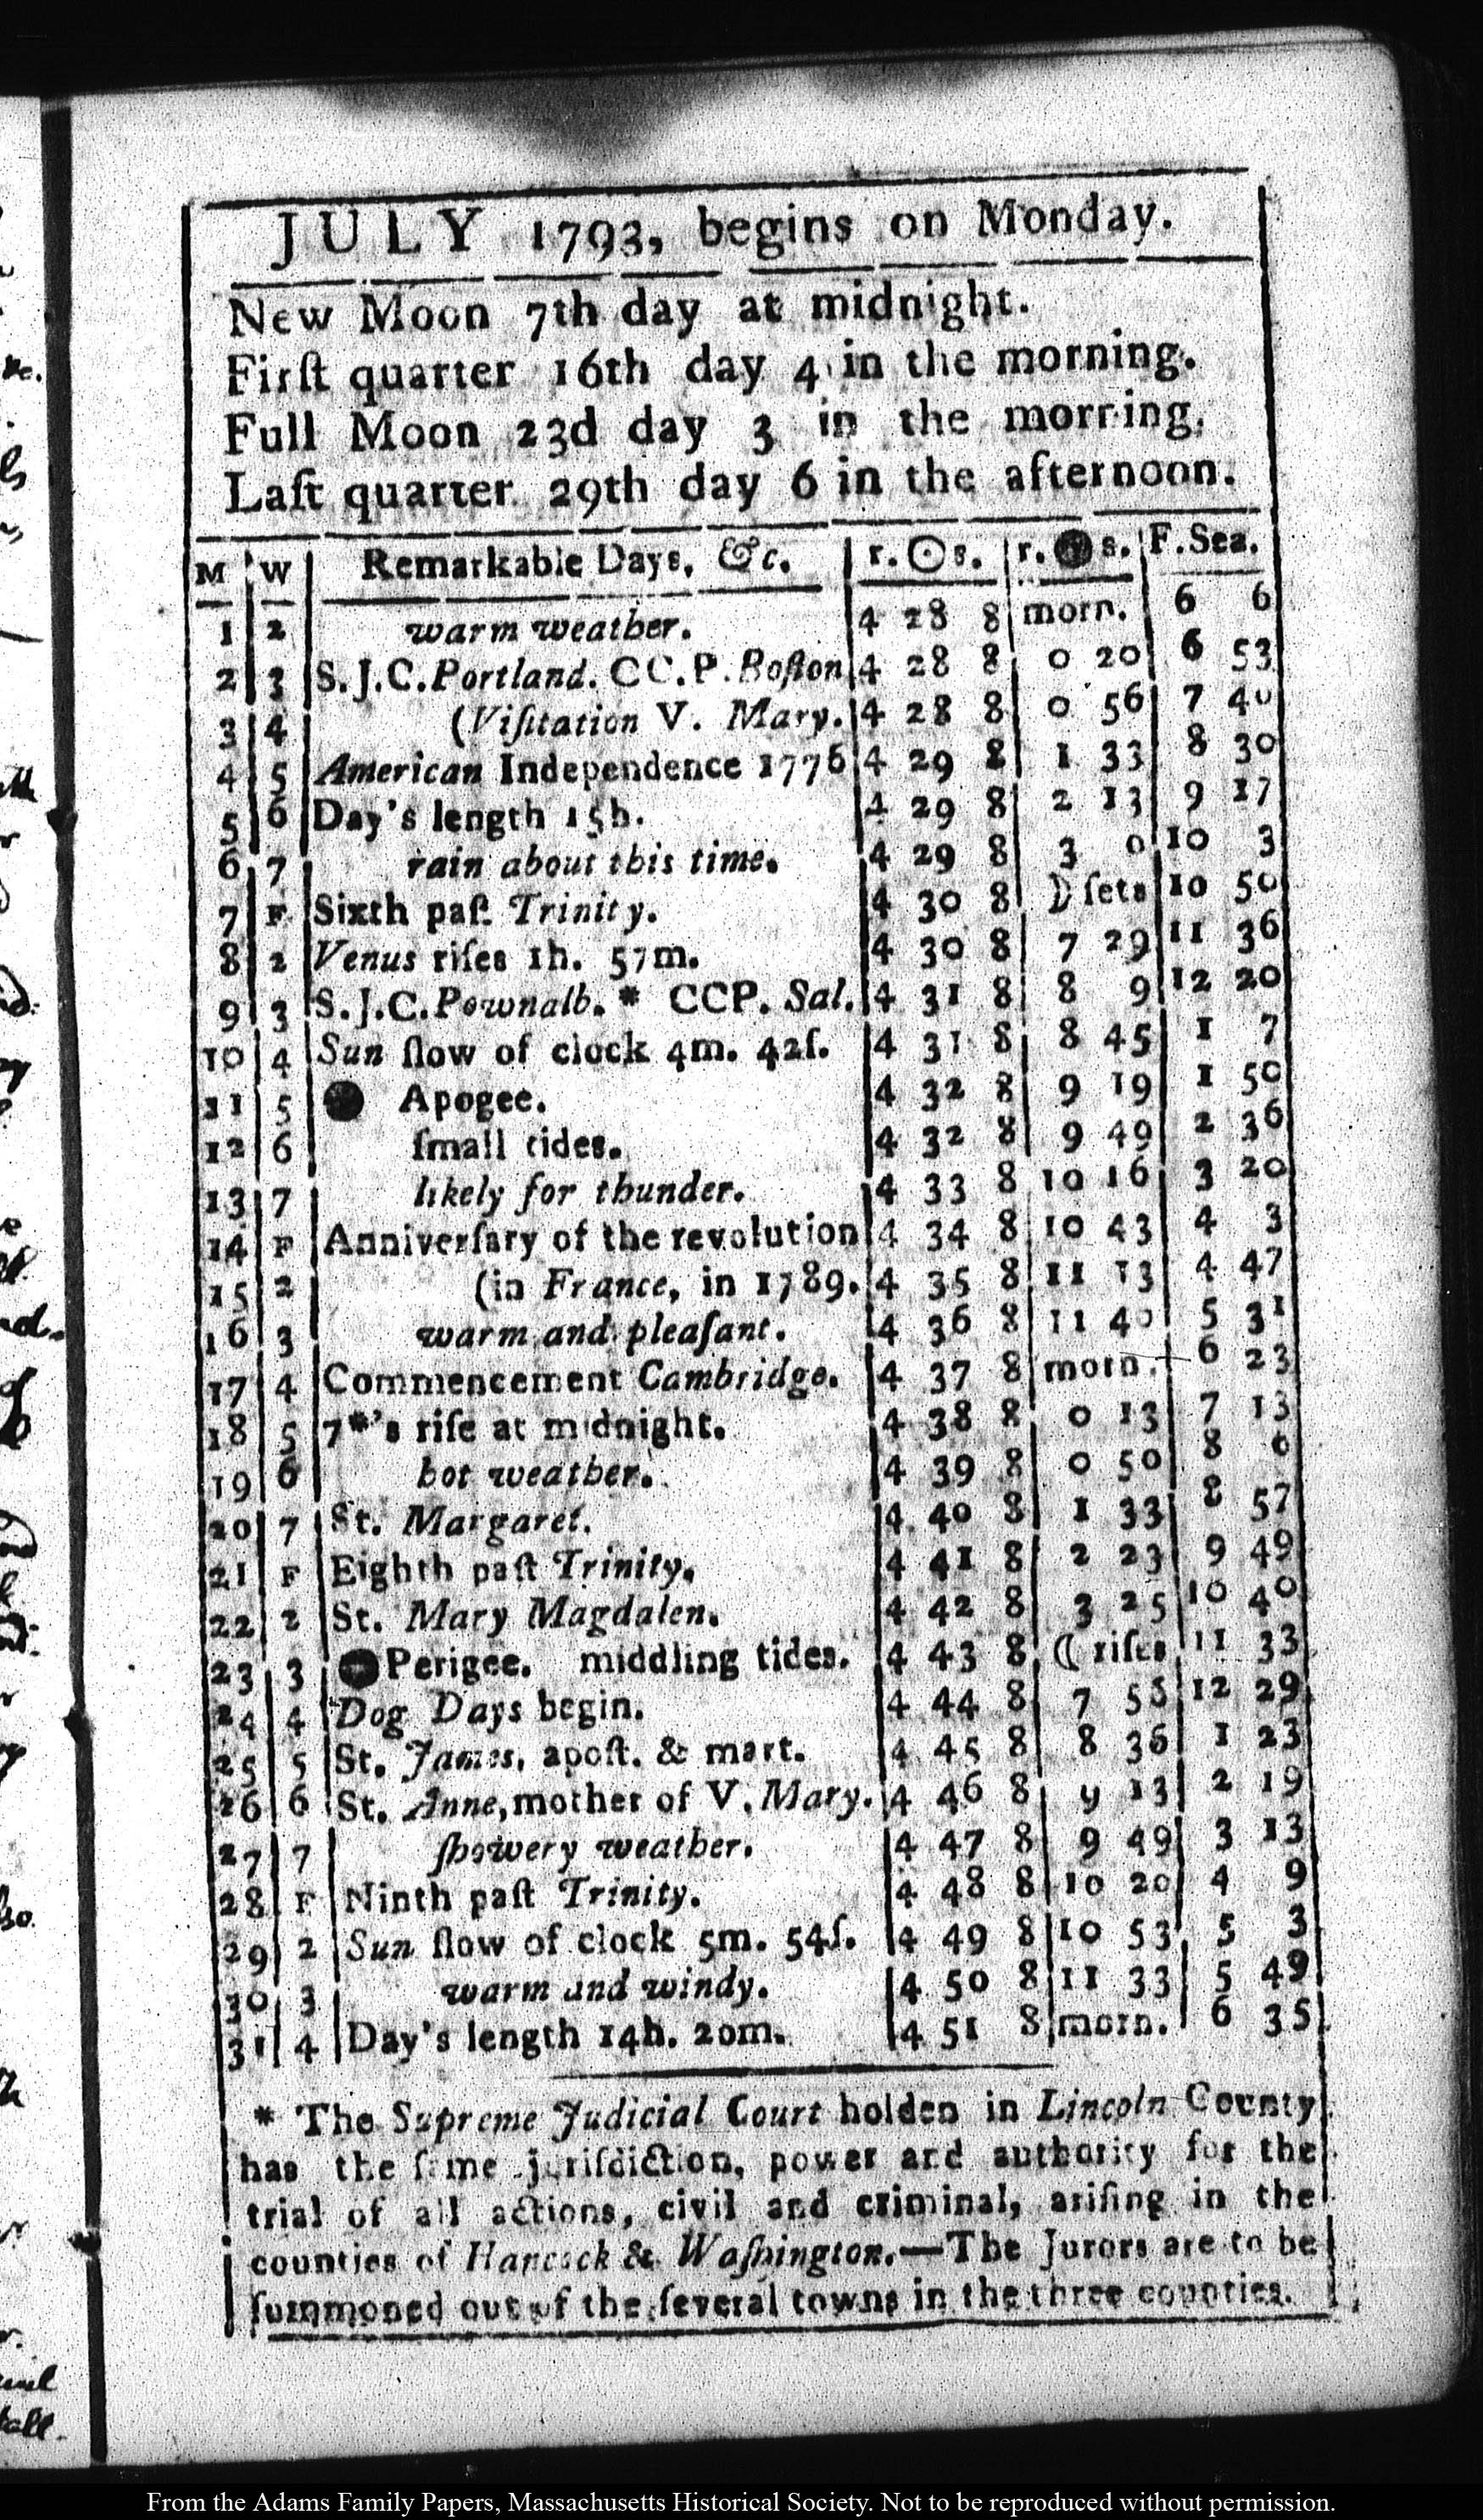 JULY 1793, begins on Monday.
New Moon 7th day at midnight.
Firſt quarter 16th day 4 in the morning.
Full Moon 23d day 3 in the morning.
Laſt quarter 29th day 6 in the afternoon.
M W Remarkable Days, &c. r. ☉ s. r. s. F. Sea.
1 2 warm weather. 4 28 8 morn. 6 6
2 3 S.J.C. Portland. CC.P. Boſton 4 28 8 0 20 6 53
3 4 (Viſitation V. Mary. 4 28 8 0 56 7 40
4 5 American Independence 1776 4 29 8 1 33 8 30
5 6 Day's length 15h. 4 29 8 2 13 9 17
6 7 rain about this time. 4 29 8 3 0 10 3
7 F Sixth paſt Trinity. 4 30 8 ☽ ſets 10 50
8 2 Venus riſes 1h. 57m. 4 30 8 7 29 11 36
9 3 S.J.C. Pownalb. * CCP. Sal. 4 31 8 8 9 12 20
10 4 Sun ſlow of clock 4m. 42ſ. 4 31 8 8 45 1 7
11 5 Apogee. 4 32 8 9 19 1 50
12 6 ſmall tides. 4 32 8 9 49 2 36
13 7 likely for thunder. 4 33 8 10 16 3 20
14 F Anniverſary of the revolution 4 34 8 10 43 4 3
15 2 (in France, in 1789. 4 35 8 11 13 4 47
16 3 warm and pleaſant. 4 36 8 11 40 5 31
17 4 Commencement Cambridge. 4 37 8 morn. 6 23
18 5 7*'s riſe at midnight. 4 38 8 0 13 7 13
19 6 hot weather. 4 39 8 0 50 8 6
20 7 St. Margaret. 4 40 8 1 33 8 57
21 F Eighth paſt Trinity. 4 41 8 2 23 9 49
22 2 St. Mary Magdalen. 4 42 8 3 25 10 40
23 3 Perigee. middling tides. 4 43 8 ☾ riſes 11 33
24 4 Dog Days begin. 4 44 8 7 58 12 29
25 5 St. James, apoſt. & mart. 4 45 8 8 36 1 23
26 6 St. Anne, mother of V. Mary. 4 46 8 9 13 2 19
27 7 ſhowery weather. 4 47 8 9 49 3 13
28 F Ninth paſt Trinity. 4 48 8 10 20 4 9
29 2 Sun ſlow of clock 5m. 54ſ. 4 49 8 10 53 5 3
30 3 warm and windy. 4 50 8 11 33 5 49
31 4 Day's length 14h. 20m. 4 51 8 morn. 6 35
* The Supreme Judicial Court holden in Lincoln County
has the ſame juriſdiction, power and authority for the
trial of all actions, civil and criminal, ariſing in the
counties of Hancock & Waſhington.—The Jurors are to be
ſummoned out of the ſeveral towns in the three counties.
From the Adams Family Papers, Massachusetts Historical Society. Not to be reproduced without permission.